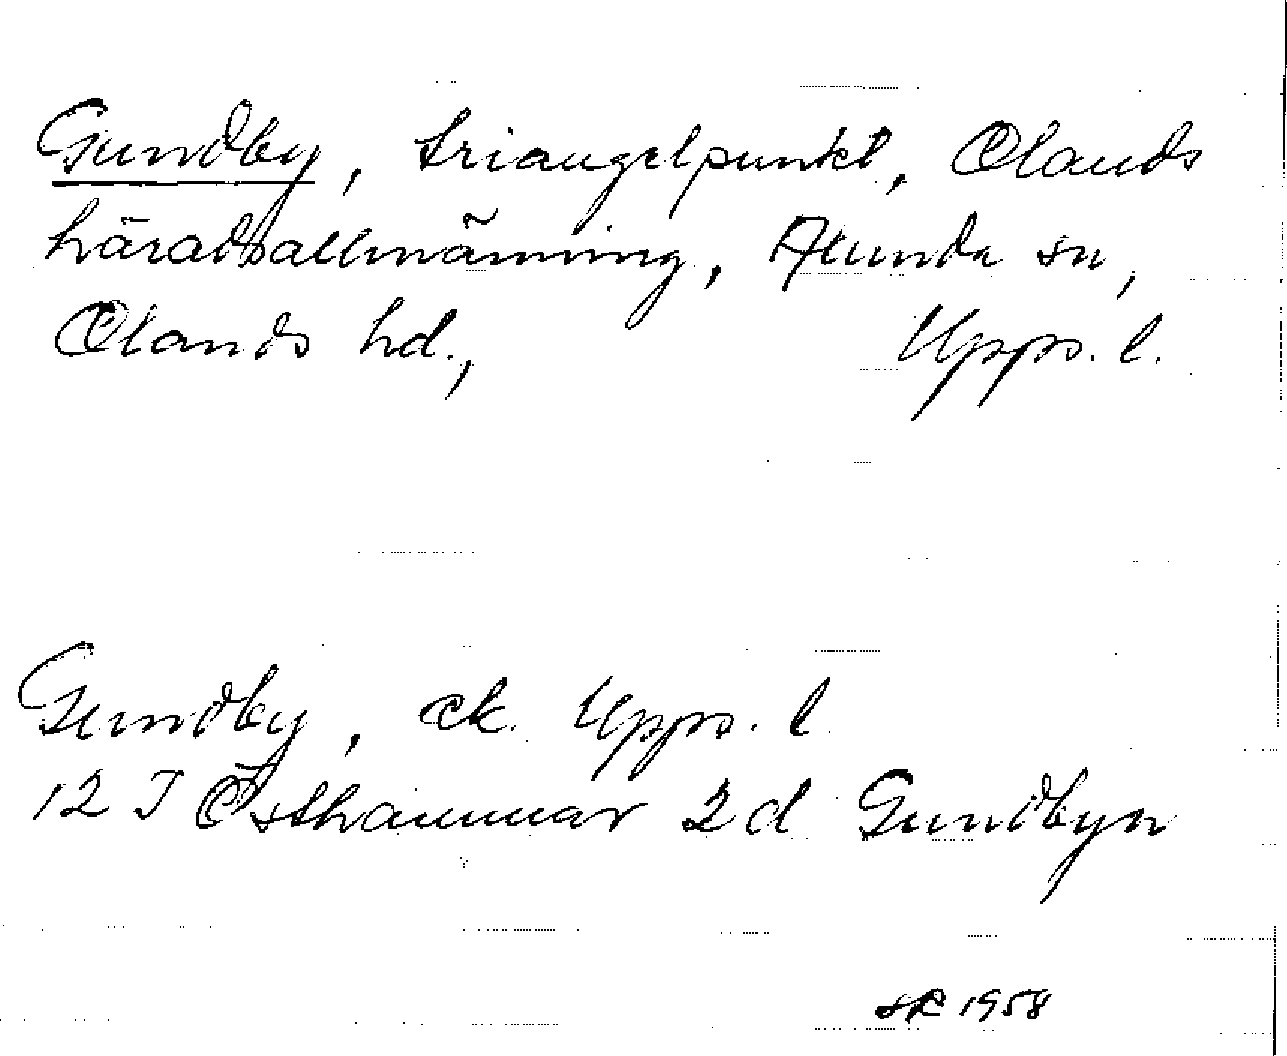 Gundby, triangelpunkt, Olands
häradsallmänning, Alunda sn,
Olands hd., Upps. l.
Gundby, ek. Upps. l
12 I Östhammar 2 d Gundbyn
1958